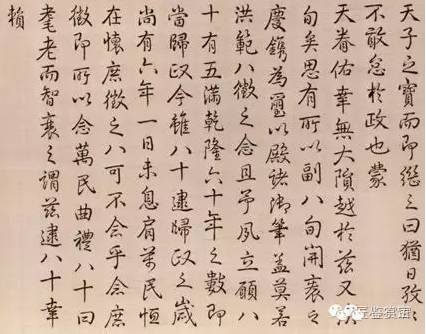 天子之寶而即繼之曰猶日孜〻
不敢怠於政也蒙
天眷佑幸無大隕越於茲又八
旬矣思有所以副八旬開袠之
慶鐫為璽以殿諸御筆蓋莫若
洪範八徵之念且予夙立願八
十有五滿乾隆六十年之數即
當歸政今雖八十逮歸政之歲
尚有六年一日未息肩萬民恒
在懷庶徵之八可不念乎念庶
徵即所以念萬民曲禮八十曰
耄老而智衰之謂茲逮八十幸
賴